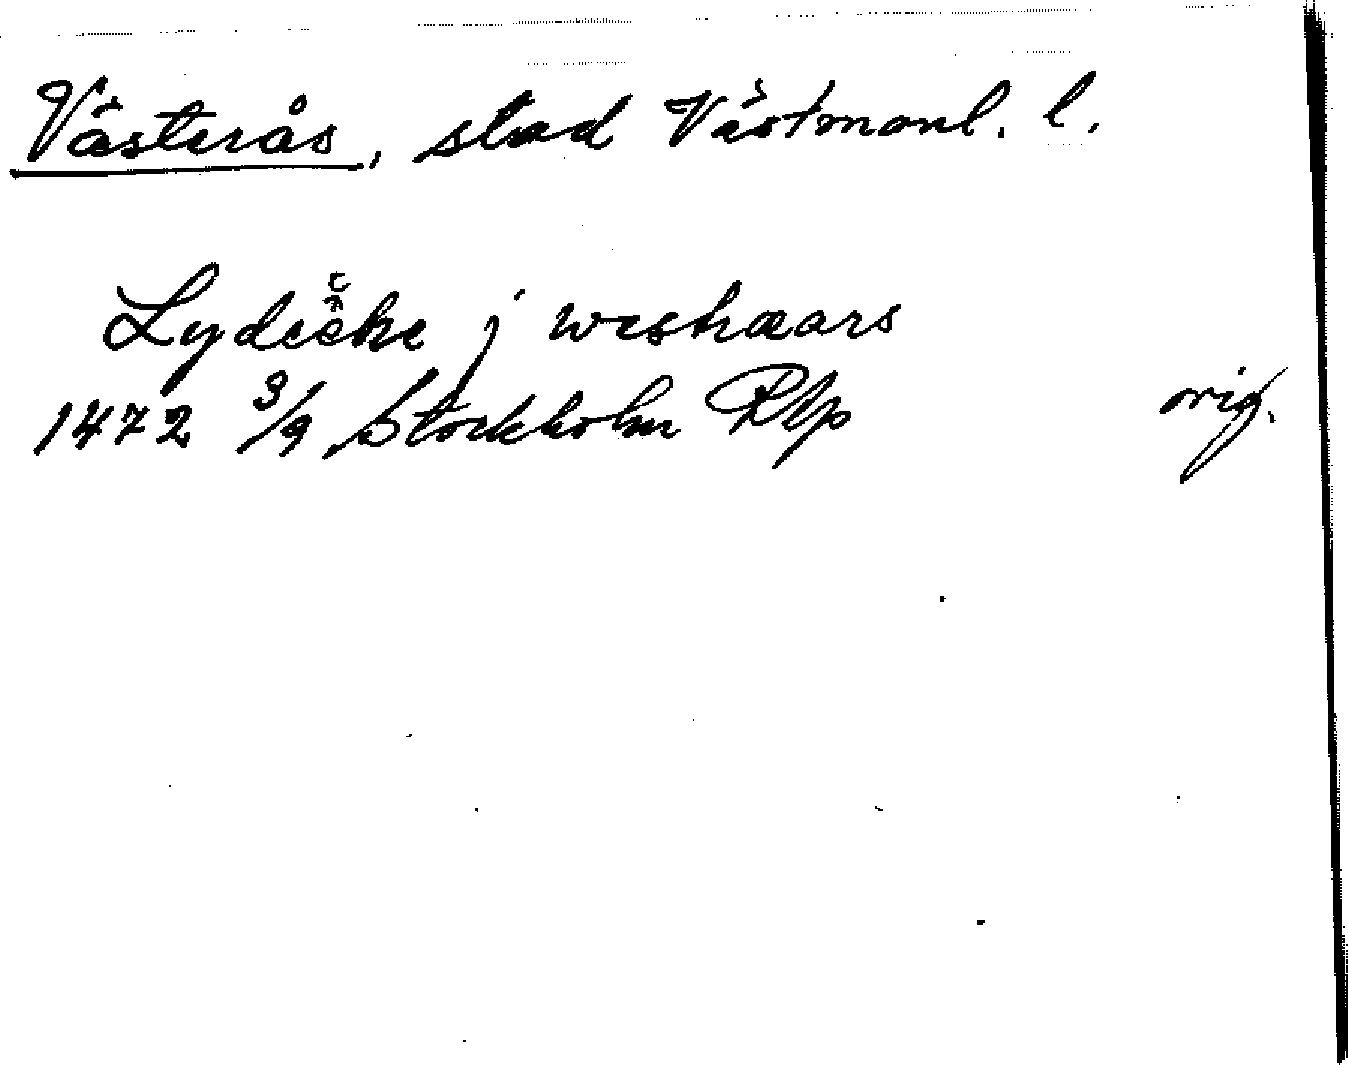 Västerås, stad Västmanl. l.
Lydecke j weshaars
1472 3/9 Stockholm RAp orig.